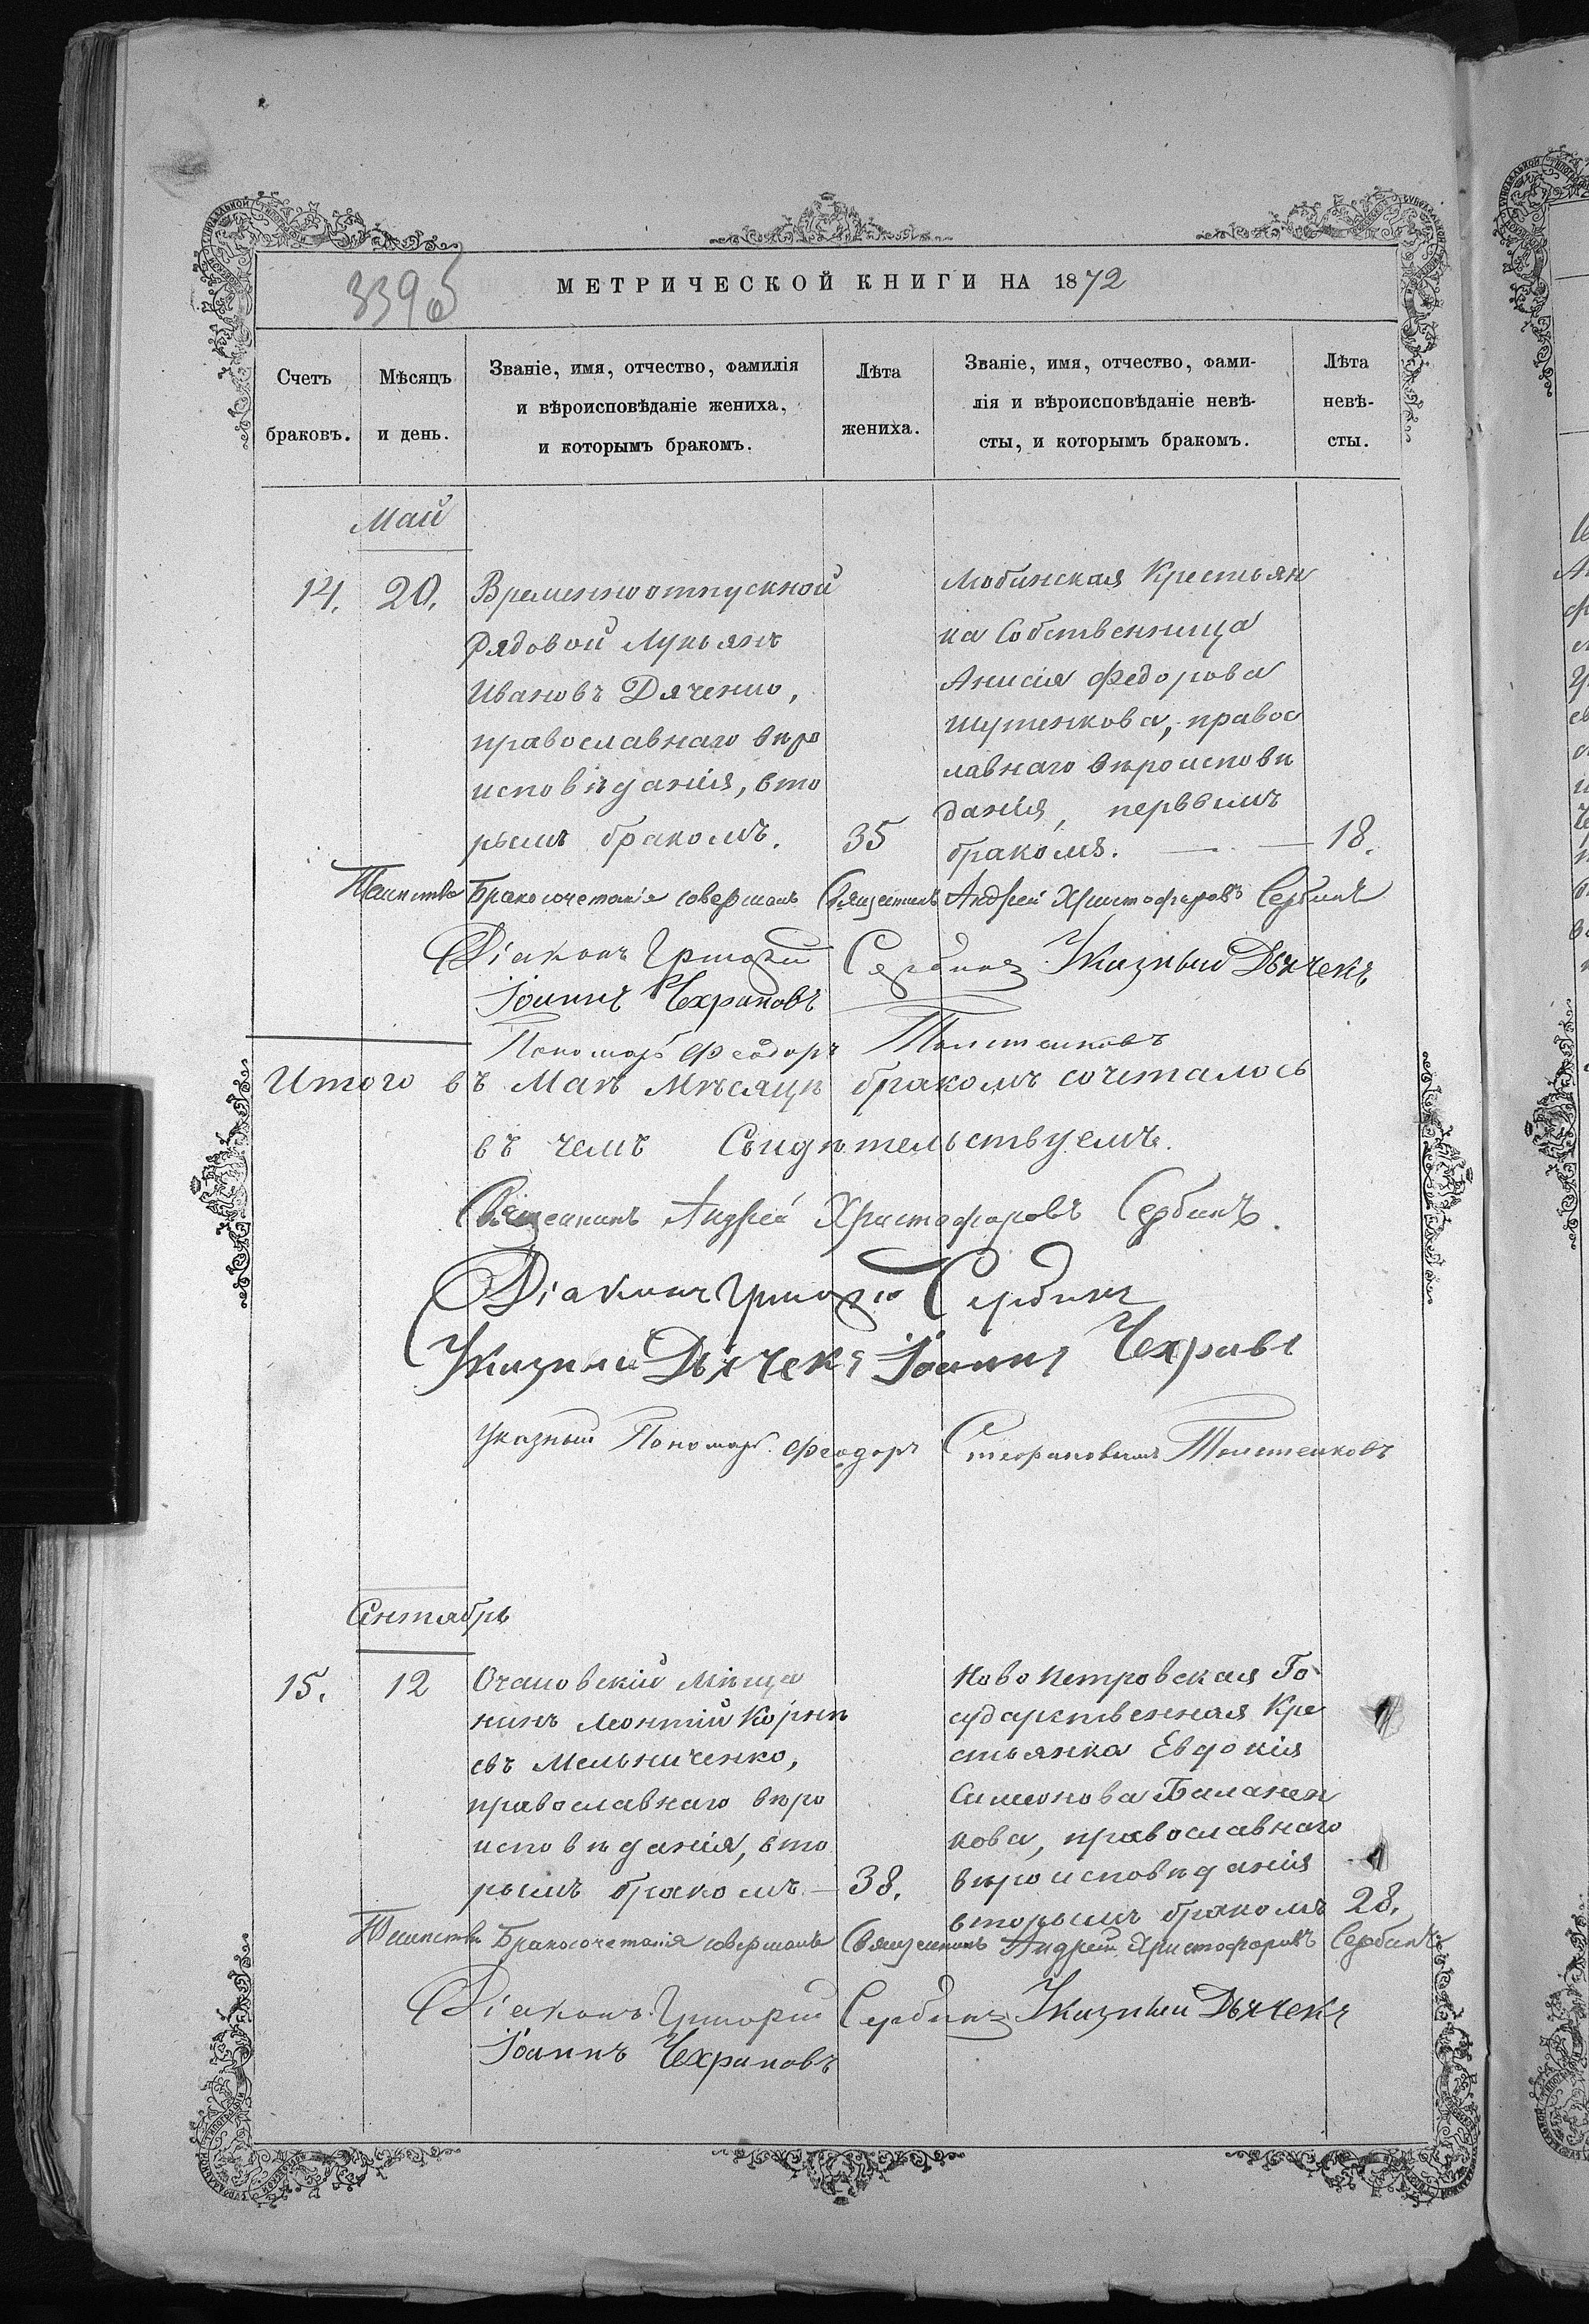 339б
МЕТРИЧЕСКОЙ КНИГИ НА 1872
Счетъ браковъ.
Мѣсяцъ и день.
Званіе, имя, отчество, фамилія
и вѣроисповѣданіе жениха,
и которымъ бракомъ.
Лѣта жениха.
Званіе, имя, отчество, фами-
лія и вѣроисповѣданіе невѣ-
сты, и которымъ бракомъ.
Лѣта невѣ-
сты.
Май
14. 20.
Временноотпускной
Рядовой Лукьянъ
Ивановъ Дяченко,
православнаго вѣро
исповѣданія, вто
рымъ бракомъ. 35
Крестьян
ка Собственница
Анисія Федорова
Шутенкова, правос
лавнаго вѣроисповѣ
данія, первымъ
бракомъ. — 18.
Таинство Бракосочетанія совершалъ Священникъ Андрей Христофоровъ Сербинъ
Діаконъ Григорій Сербинъ Указный Дьячекъ
Іоаннъ Чехрановъ
Пономарь Феодоръ
Итого въ Маѣ Мѣсяцѣ бракомъ сочеталось
въ чемъ Свидѣтельствуемъ.
Священникъ Андрей Христофоровъ Сербинъ.
Діаконъ Григорій Сербинъ
Указный Дьячекъ Іоаннъ
Указный Пономарь Феодоръ
Сентябрь
15. 12
Очаковскій Мѣща
нинъ Леонтій Корнѣ
евъ Мельниченко,
православнаго вѣро
исповѣданія, вто
рымъ бракомъ — 38.
Новопетровская Го
сударственная Кре
стьянка Евдокія
Симеонова Баланен
кова, православнаго
вѣроисповѣданія
вторымъ бракомъ 28.
Таинство Бракосочетанія совершалъ Священникъ Андрей Христофоровъ Сербинъ
Діаконъ Григорій Сербинъ Указный Дьячекъ
Іоаннъ Чехрановъ